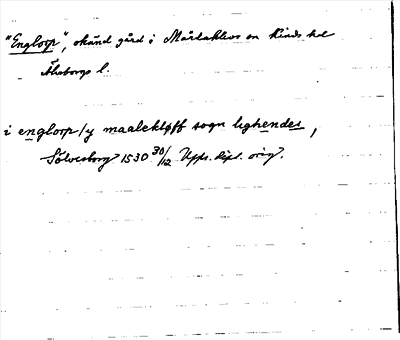 "Englorp", okänd gård i Mårdaklevs sn Kinds hd
Älvsborgs l.
i englorp /y maalekløff sogn lighendes,
Sölvesborg 1530 30/12 Upps. dipl. orig.